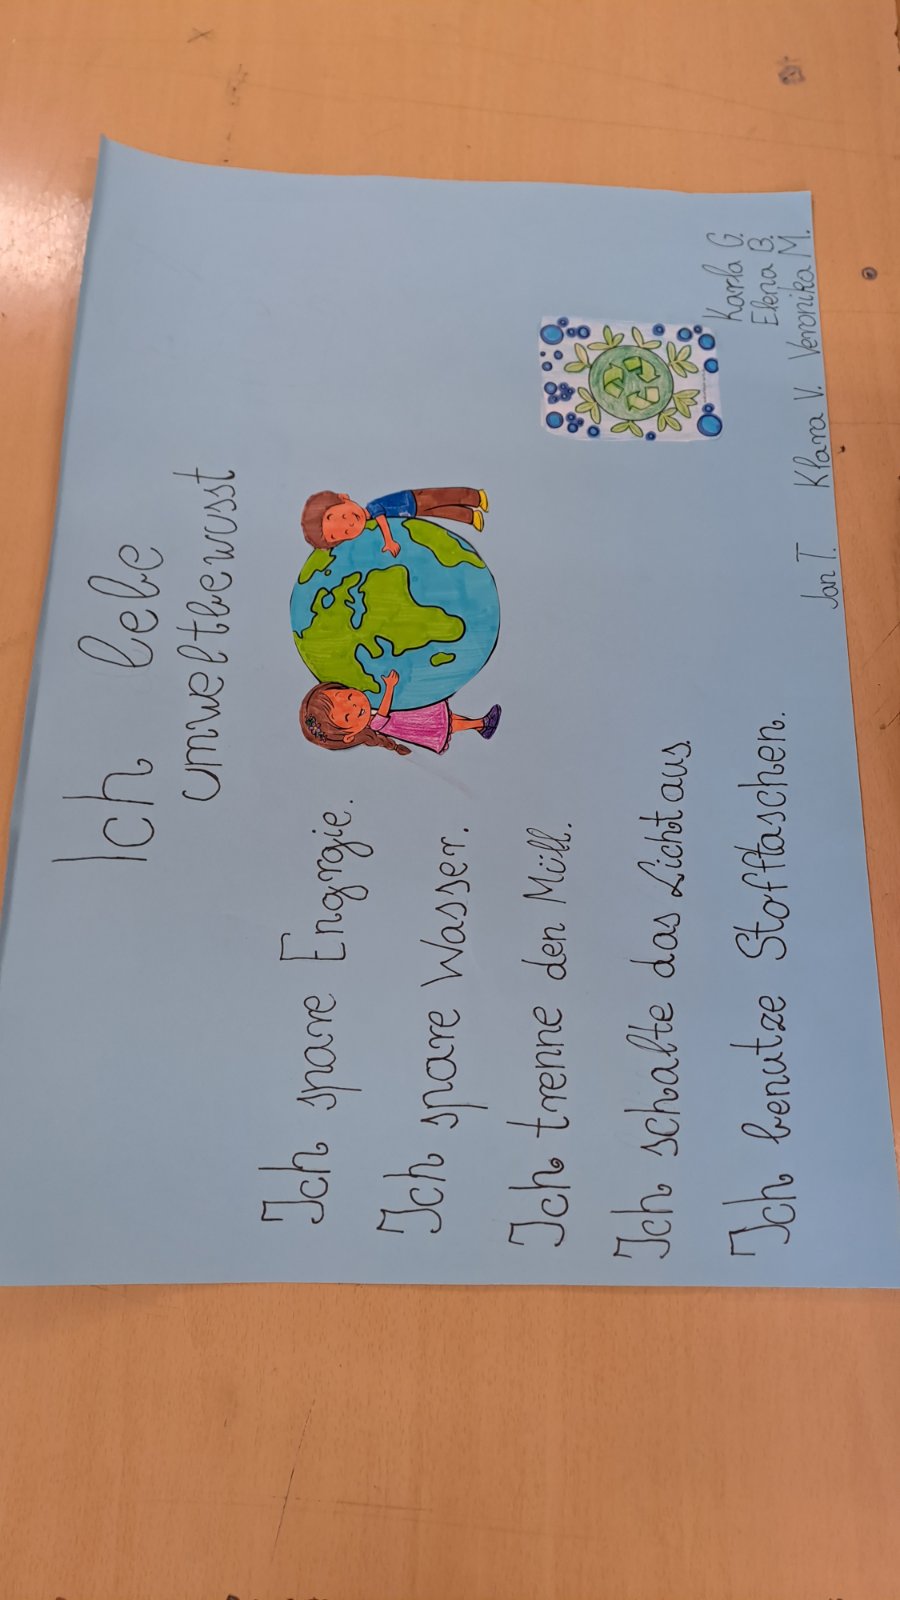 Ich lebe
umweltbewusst
Ich spare Engrgie.
Ich spare Wasser.
Ich trenne den Müll.
Ich schalte das Licht aus.
Ich benutze Stofftaschen.
Karla G.
Elena B.
Jan T. Klara V. Veronika M.